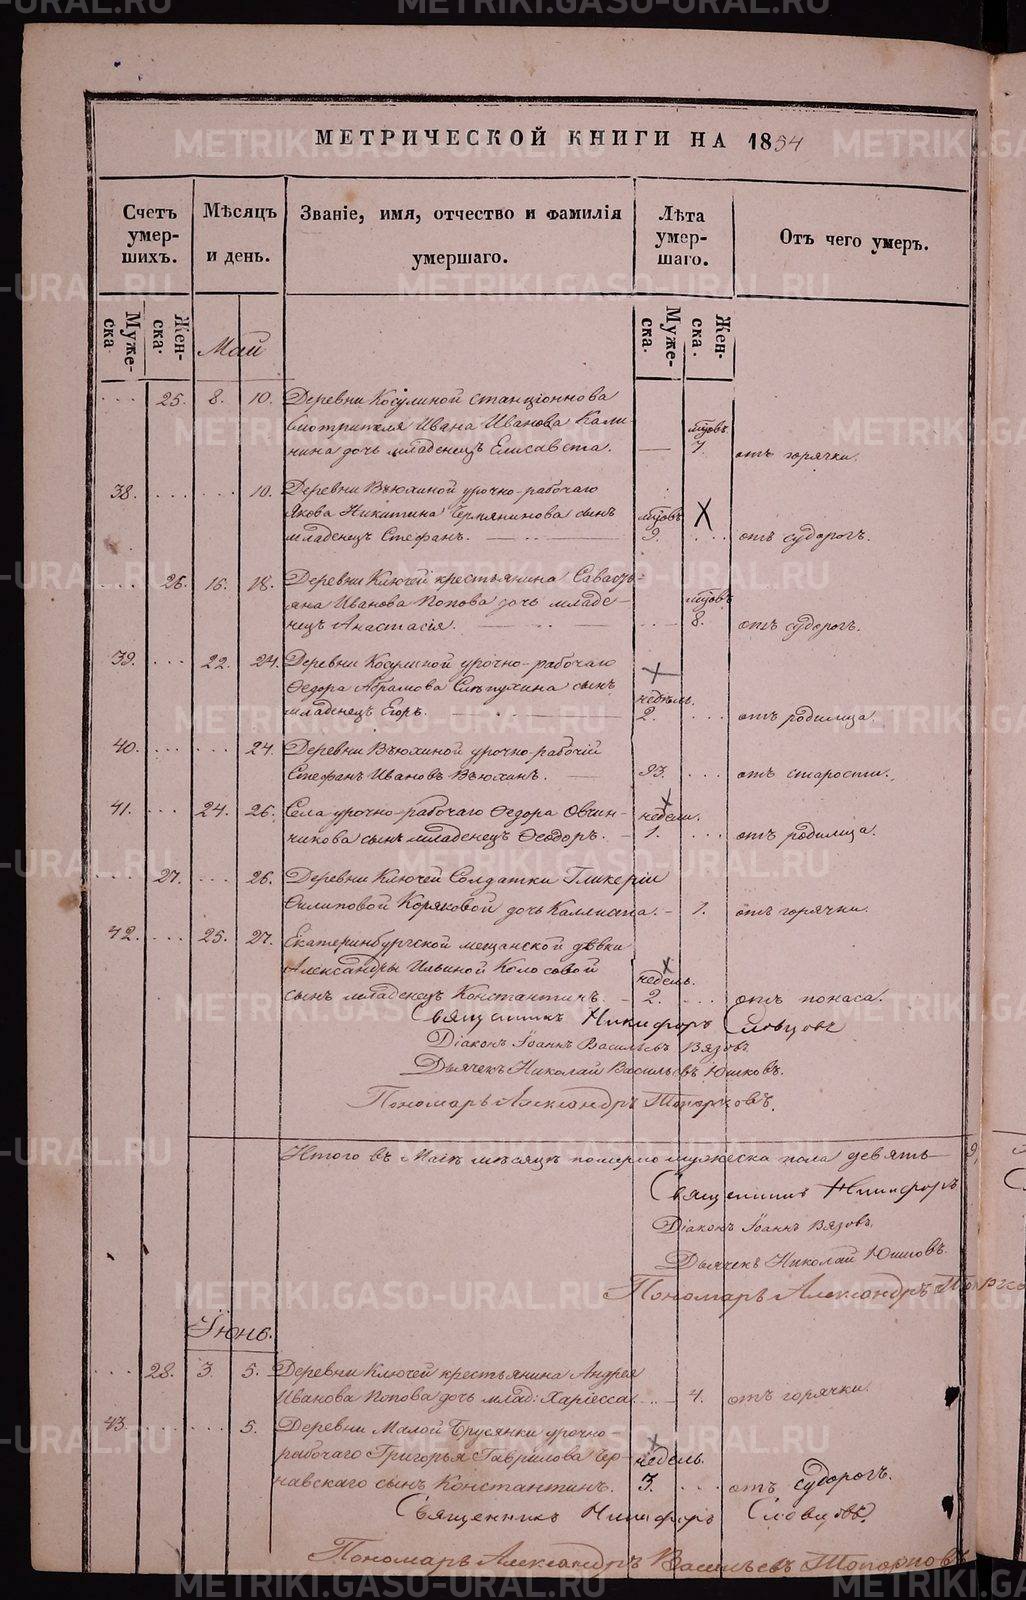 МЕТРИЧЕСКОЙ КНИГИ НА 1854
Счетъ умер-шихъ.
Мѣсяцъ и день.
Званіе, имя, отчество и фамилія умершаго.
Лѣта умер-шаго.
Отъ чего умеръ.
Муже-ска
Жен-ска.
Муже-ска.
Жен-ска.
Май
25. 8. 10. Деревни Косулиной станціоннова
Смотрителя Ивана Иванова Кали- мцовъ
нина дочь младенецъ Елисавета. 7. отъ горячки.
38. 10. Деревни Вьюхиной урочно-рабочаго
Якова Никитина Чермянинова сынъ мцовъ
младенецъ Стефанъ. 9. отъ судорогъ.
26. 16. 18. Деревни Ключей крестьянина Савас
ана Иванова Попова дочь младе- мцовъ
нецъ Анастасія. 8. отъ судорогъ.
39. 22. 24. Деревни Косулиной урочно-рабочаго
Ѳедора Абрамова Слѣпухина сынъ недѣль.
младенецъ Егоръ. 2. отъ родимца.
40. 24. Деревни Вьюхиной урочно-рабочій
Стефанъ Ивановъ Вьюхинъ. 93. отъ старости.
41. 24. 26. Села урочно-рабочаго Ѳедора Овчин- недели.
никова сынъ младенецъ Ѳеодоръ. 1. отъ родимца.
27. 26. Деревни Ключей Солдатки Гликеріи
Филиповой Коряковой дочь Каллиста. 1. отъ горячки.
42. 25. 27. Екатеринбургской мещанской дѣвки
Александры Ильиной Колосовой недель.
сынъ младенецъ Константинъ. 2. отъ поноса.
Священникъ Никифоръ Словцовъ
Діаконъ Іоаннъ Васильевъ Вязовъ.
Дьячекъ Николай Васильевъ Юшковъ.
Пономарь Александръ Топорковъ.
Итого въ Маѣ мѣсяцѣ померло мужеска пола девять 9,
Священникъ Никифоръ
Діаконъ Іоаннъ Вязовъ.
Дьячекъ Николай Юшковъ.
Пономарь Александръ
Іюнь.
28. 3. 5. Деревни Ключей крестьянина Андрея
Иванова Попова дочь млад: Харіесса. 4. отъ горячки.
43. 5. Деревни Малой Брусянки урочно
рабочаго Григорья Гаврилова Чер- недель.
навскаго сынъ Константинъ. 3. отъ судорогъ.
Священникъ Никифоръ Словцовъ.
Пономарь Александръ Васильевъ Топорковъ